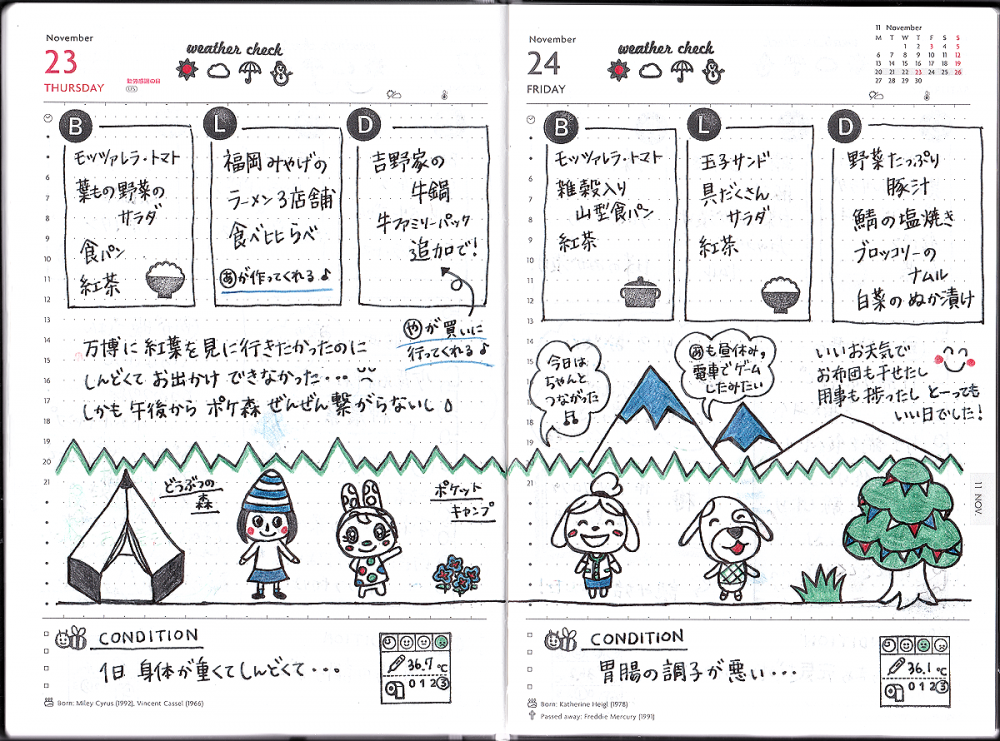 November
23
THURSDAY
勤労感謝の日
weather check
B
モッツァレラ・トマト
葉もの野菜の
サラダ
食パン
紅茶
L
福岡みやげの
ラーメン3店舗
食べヒヒらべ
あが作ってくれる♪
D
吉野家の
牛鍋
牛ファミリーパック
追加で!
やが買いに
行ってくれる♪
7
8
9
10
11
12
13
14
15
16
17
18
19
20
21
万博に紅葉を見に行きたかったのに
しんどくてお出かけできなかった・・・
しかも午後からポケ森ぜんぜん繋がらないし
どうぶつの
森
ポケット
キャンプ
CONDITION
1日 身体が重くてしんどくて・・・
36.7℃
0 1 2 3
Born: Miley Cyrus (1992), Vincent Cassel (1966)
November
24
FRIDAY
weather check
11 November
M T W T F S S
1 2 3 4 5
6 7 8 9 10 11 12
13 14 15 16 17 18 19
20 21 22 23 24 25 26
27 28 29 30
B
モッツァレラ・トマト
雑穀入り
山型食パン
紅茶
L
玉子サンド
具だくさん
サラダ
紅茶
D
野菜たっぷり
豚汁
鯖の塩焼き
ブロッコリーの
ナムル
白菜のぬか漬け
7
8
9
10
11
12
13
14
15
16
17
18
19
20
21
今日は
ちゃんと
つながった
♫
あも昼休み,
電車でゲーム
したみたい
いいお天気で
お布団も干せたし
用事も捗ったし とーっても
いい日でした!
11 NOV.
CONDITION
胃腸の調子が悪い・・・
36.1℃
0 1 2 3
Born: Katherine Heigl (1978)
Passed away: Freddie Mercury (1991)